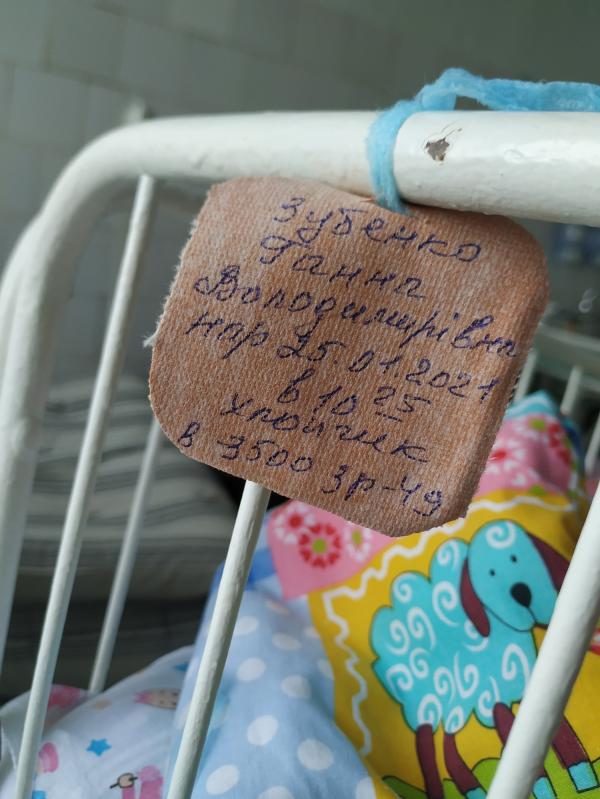 Зубенко
Ганна
Володимирівна
нар 25.01.2021
в 10 25
хлопчик
в 3500 зр-49